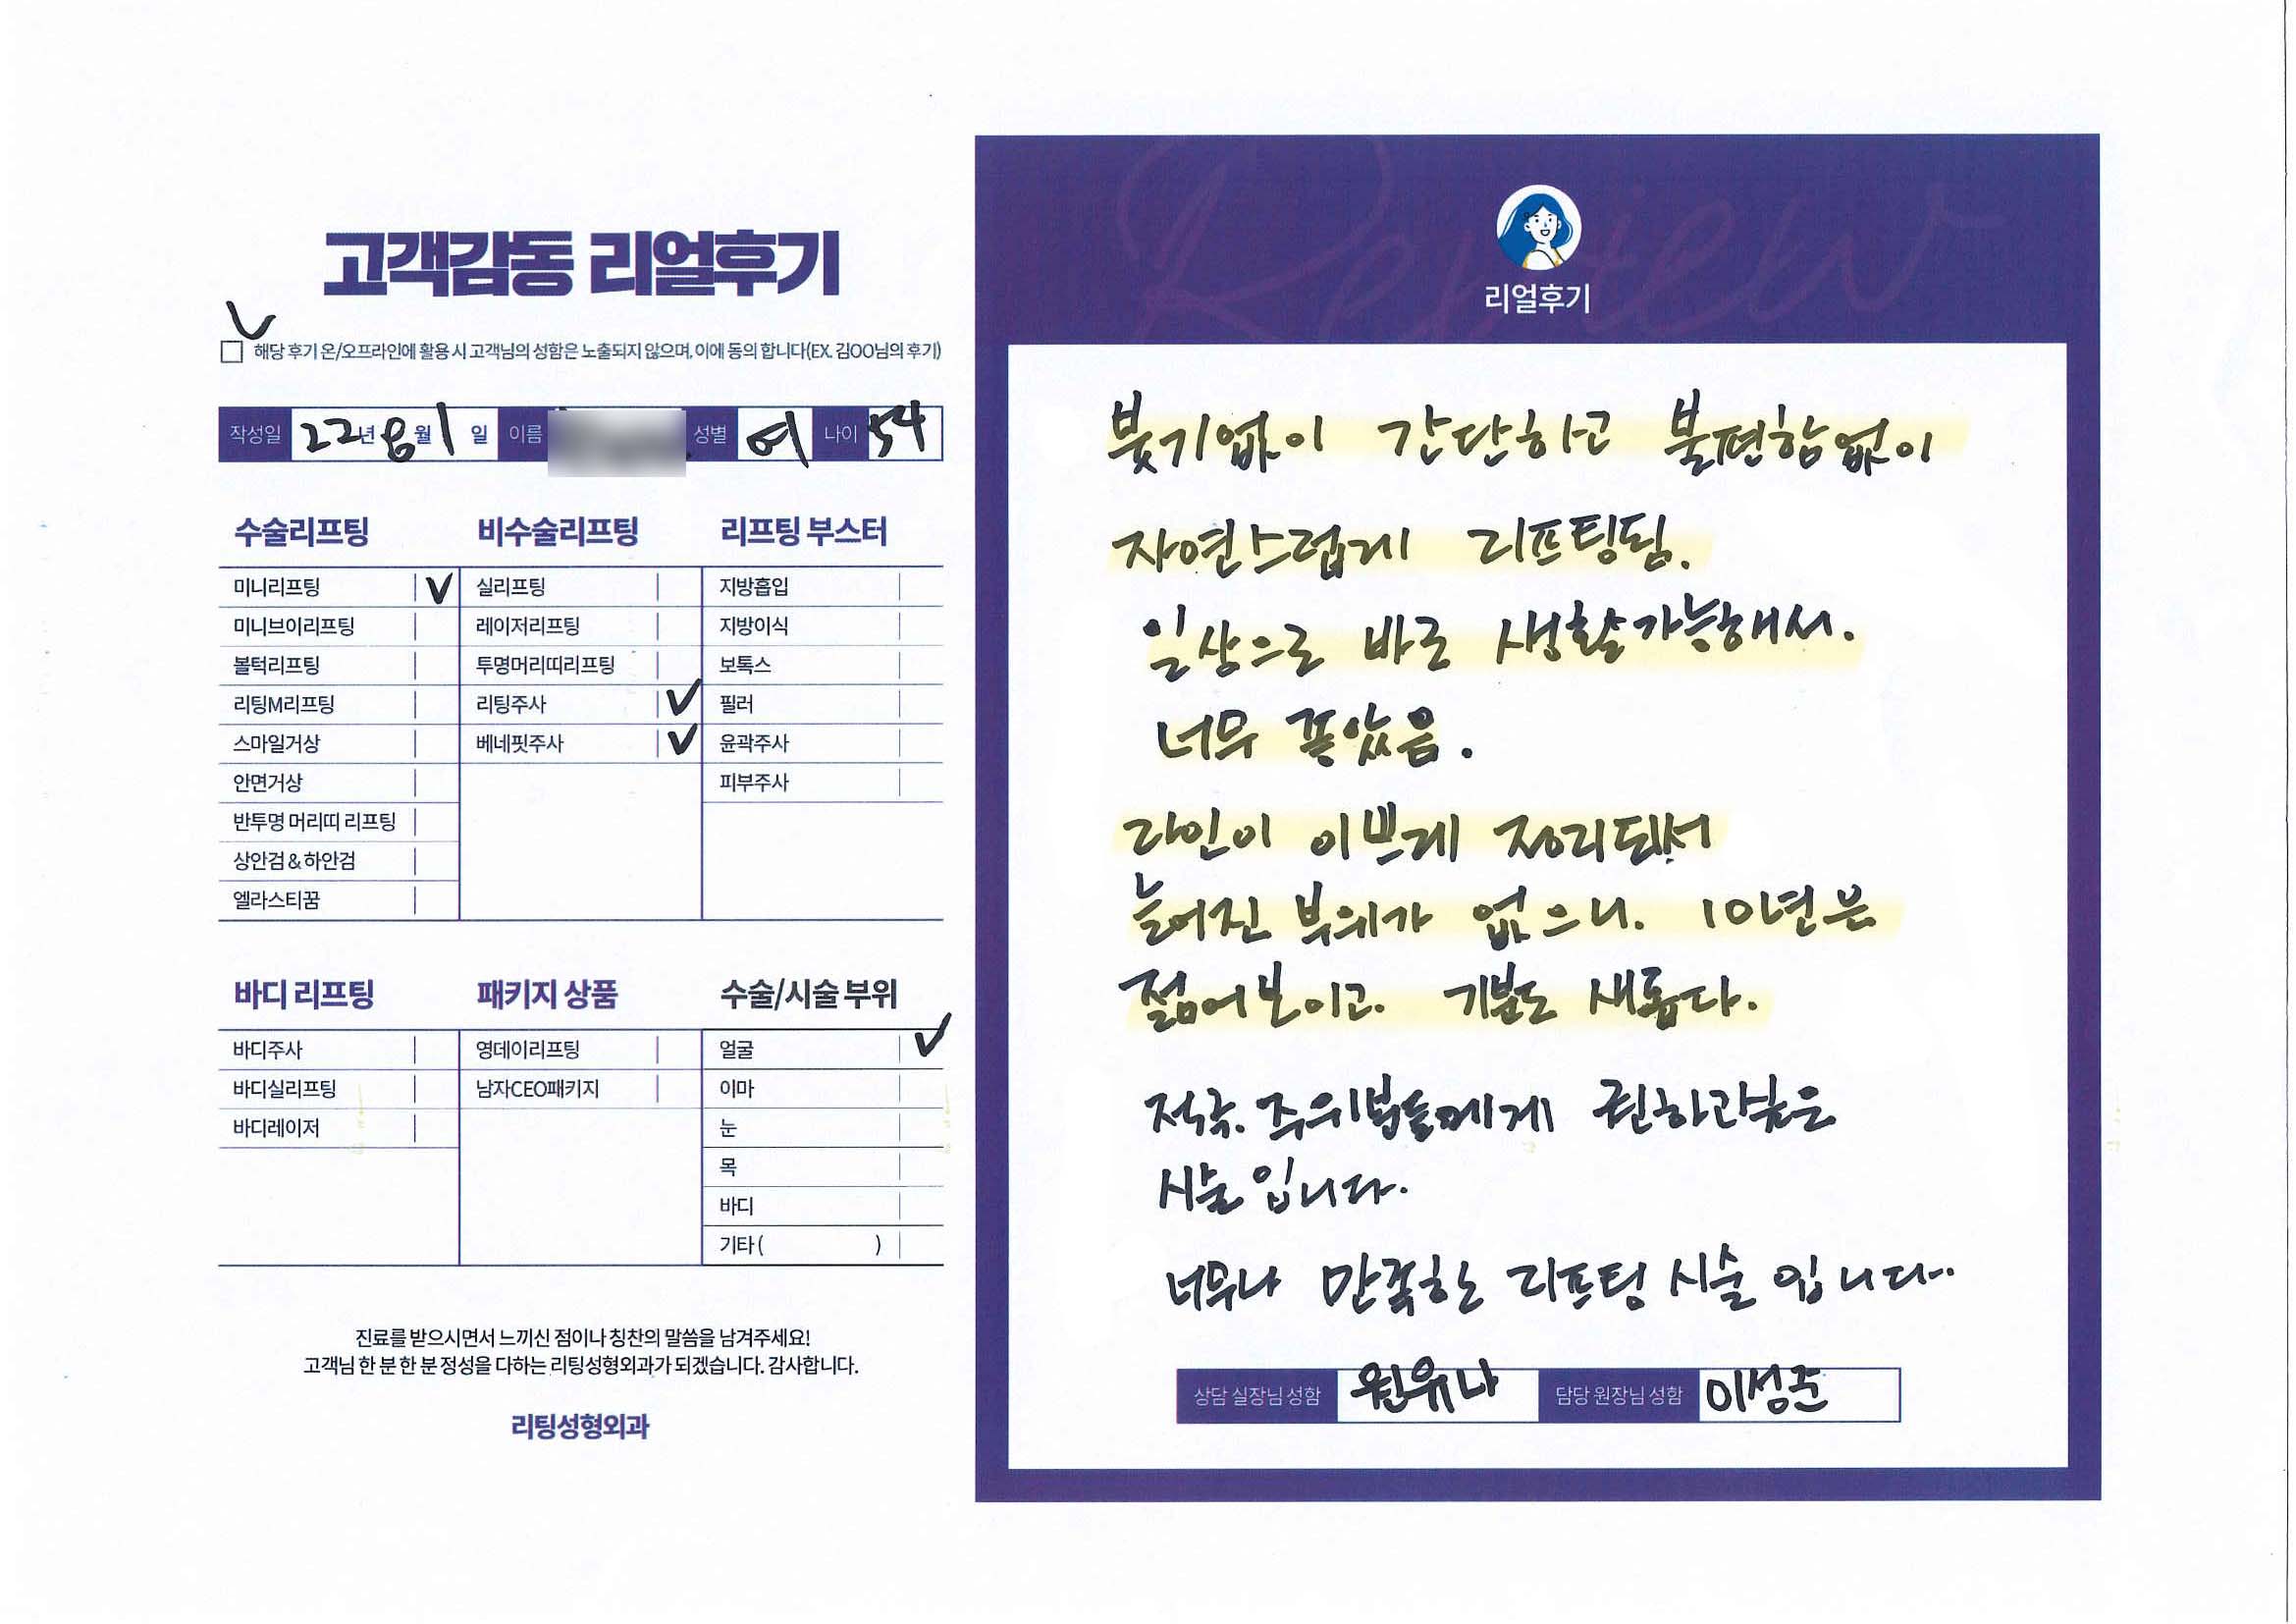 고객감동 리얼후기
해당 후기 온/오프라인에 활용 시 고객님의 성함은 노출되지 않으며, 이에 동의 합니다(EX. 김OO님의 후기)
작성일 22년 8월 1 일 이름 성별 여 나이 54
수술리프팅
미니리프팅 V
미니브이리프팅
볼턱리프팅
리팅M리프팅
스마일거상
안면거상
반투명 머리띠 리프팅
상안검&하안검
엘라스티꿈
비수술리프팅
실리프팅
레이저리프팅
투명머리띠리프팅
리팅주사 V
베네핏주사 V
리프팅 부스터
지방흡입
지방이식
보톡스
필러
윤곽주사
피부주사
바디 리프팅
바디주사
바디실리프팅
바디레이저
패키지 상품
영데이리프팅
남자CEO패키지
수술/시술 부위
얼굴 V
이마
눈
목
바디
기타 ( )
진료를 받으시면서 느끼신 점이나 칭찬의 말씀을 남겨주세요!
고객님 한 분 한 분 정성을 다하는 리팅성형외과가 되겠습니다. 감사합니다.
리팅성형외과
Review
리얼후기
붓기없이 간단하고 불편함없이
자연스럽게 리프팅됨.
일상으로 바로 생활가능해서.
너무 좋았음.
라인이 이쁘게 정리되서
늘어진 부위가 없으니. 10년은
젊어보이고. 기분도 새롭다.
적극. 주위분들에게 권하고싶은
시술입니다.
너무나 만족하는 리프팅 시술 입니다..
상담 실장님 성함 원유나 담당 원장님 성함 이성준